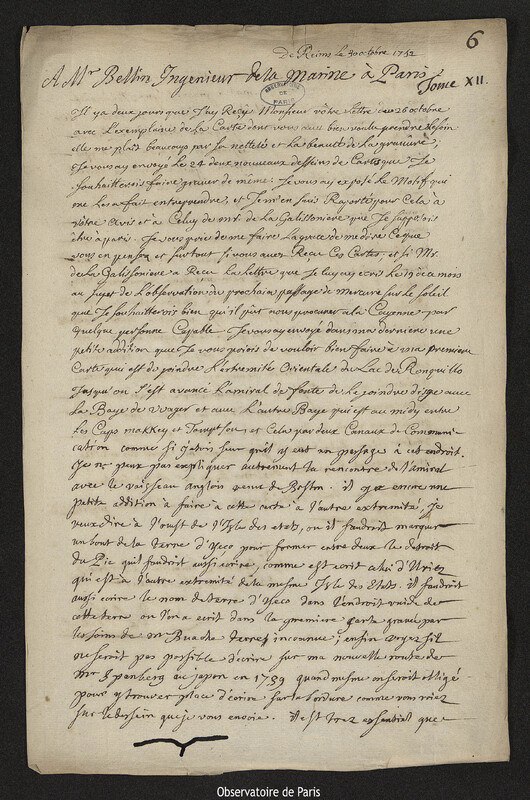 De Reims le 30 octobre 1752
6
A Mr Bellin Ingenieur de la Marine à Paris
Tome XII.
OBSERVATOIRE DE PARIS
Il y a deux jours que J'ay Reçu Monsieur vôtre lettre du 26 octobre
avec L'exemplaire de la Carte dont vous avez bien voulu prendre le soin
elle me plait beaucoup par la netteté et la beauté de la gravure;
Je vous ay envoyé le 24 deux nouveaux desseins de Cartes que Je
souhaitterois faire graver de même: Je vous ay exposé le Motif qui
me les a fait entreprendre; et Je m'en suis Raporté pour Cela à
vôtre Avis et à Celuy de mr. de la Galissoniere que Je suppose
être a paris. Je vous prie de me faire la grace de me dire Ce que
vous en pensez et sur tout si vous avez Recu Ces Cartes, et si Mr.
de la Galissoniere a Recu la lettre que Je luy ay ecrit le 19 de ce mois
au sujet de L'observation du prochain passage de Mercure sur le Soleil
que Je souhaitterois bien qu'il pût nous procurer a la Cayenne par
quelque personne Capable. Je vous ay envoyé dans ma derniere une
petite addition que Je vous priois de vouloir bien faire à ma premiere
Carte qui est de joindre l'extremité Orientale du Lac de Ronquillo
Jusqu'ou s'est avancé L'amiral de fonte de le joindre dis je avec
La Baye de Wager et avec L'autre Baye qui est au midy entre
Les Caps makkey et Tompson; et Cela par deux Canaux de Communi-
cation comme si j'etois seur qu'il y eut un passage à cet endroit.
Je ne peux pas expliquer autrement la rencontre de l'amiral
avec le vaisseau anglois venu de Boston. il y a encore une
petite addition à faire à cette carte à l'autre extremité, je
veux dire à l'ouest de l'Isle des etats, ou il faudroit marquer
un bout de la terre d'Yeco pour former entre deux le detroit
du Pic qu'il faudroit aussi ecrire, comme est ecrit celui d'Uriez
qui est à l'autre extremité de la mesme Isle des Etats. il faudroit
aussi ecrire le nom de terre d'Yeco dans l'endroit vuide de
cette terre ou l'on a ecrit dans la premiere carte gravée par
les soins de mr Buache terres inconnues; enfin voyez s'il
ne seroit pas possible d'ecrire sur ma nouvelle route de
Mr Spanberg au japon en 1739 quand mesme on seroit obligé
pour y trouver place d'ecrire sur la bordure comme vous verrez
sur le dessein que je vous envoie. Il est tres essentiel que
Observatoire de Paris